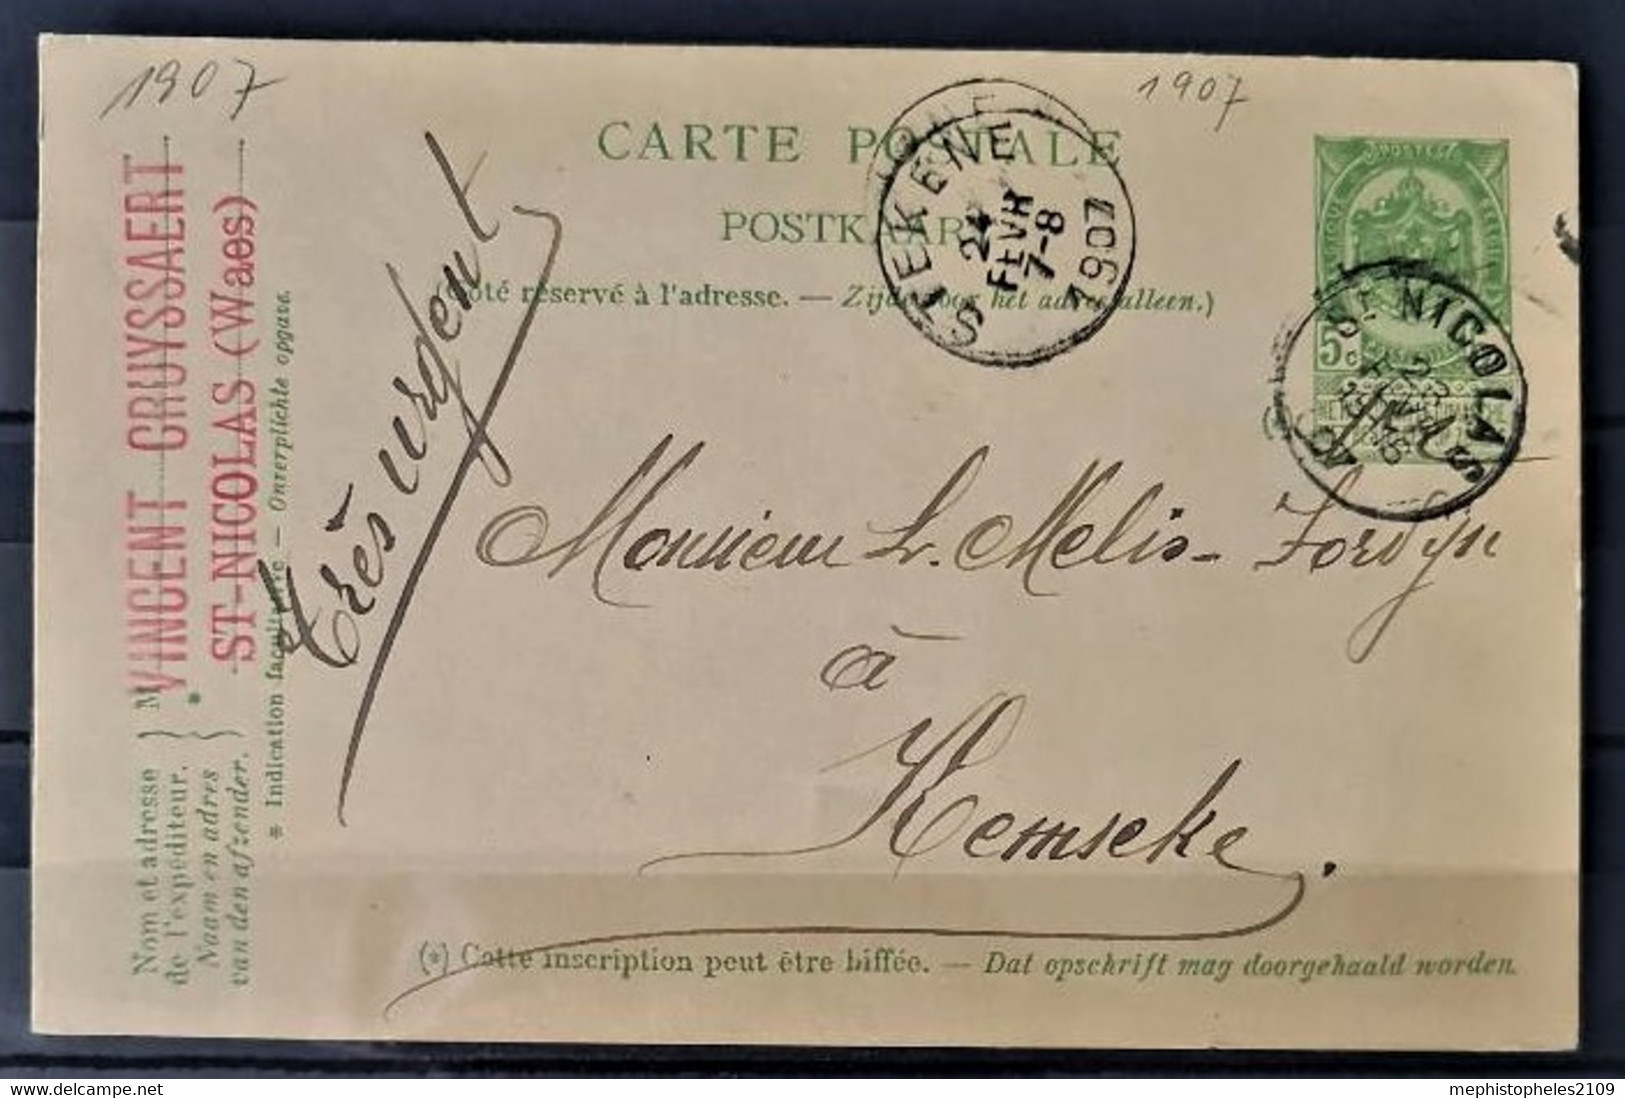 1907
1907
CARTE POSTALE
POSTKAART
(Côté réservé à l'adresse. — Zijde voor het adres alleen.)
STEKENE
24
FEVR
7-8
1907
POSTES
5c
ST NICOLAS
VINCENT CRUYSSAERT
ST-NICOLAS (Waes)
M
*
Nom et adresse
de l'expéditeur.
Naam en adres
van den afzender.
* Indication facultative — Onverplichte opgave.
Très urgent
Monsieur L. Melis-
à
Kemseke.
(*) Cette inscription peut être biffée. — Dat opschrift mag doorgehaald worden.
delcampe.net
mephistopheles2109